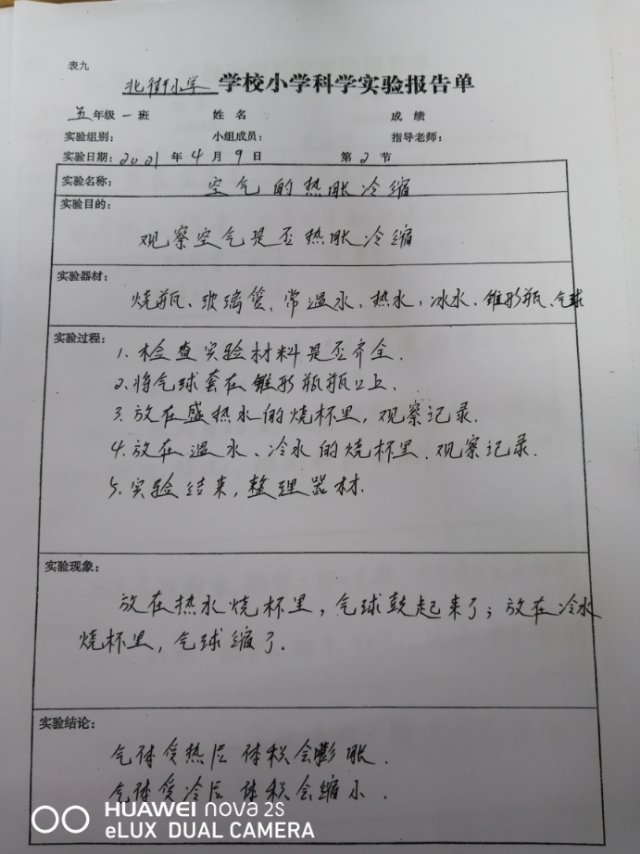 表九
北街小学 学校小学科学实验报告单
五年级一班 姓名 成绩
实验组别: 小组成员: 指导老师:
实验日期: 2021年4月9日 第2节
实验名称: 空气的热胀冷缩
实验目的:
观察空气是否热胀冷缩
实验器材:
烧瓶、玻璃管,常温水、热水,冰水.锥形瓶、气球
实验过程:
1、检查实验材料是否齐全.
2、将气球套在锥形瓶瓶口上.
3.放在盛热水的烧杯里,观察记录.
4.放在温水、冷水的烧杯里.观察记录.
5.实验结束,整理器材.
实验现象:
放在热水烧杯里,气球鼓起来了;放在冷水
烧杯里,气球缩了.
实验结论:
气体受热后 体积会膨胀.
气体受冷后 体积会缩小.
HUAWEI nova 2S
eLUX DUAL CAMERA